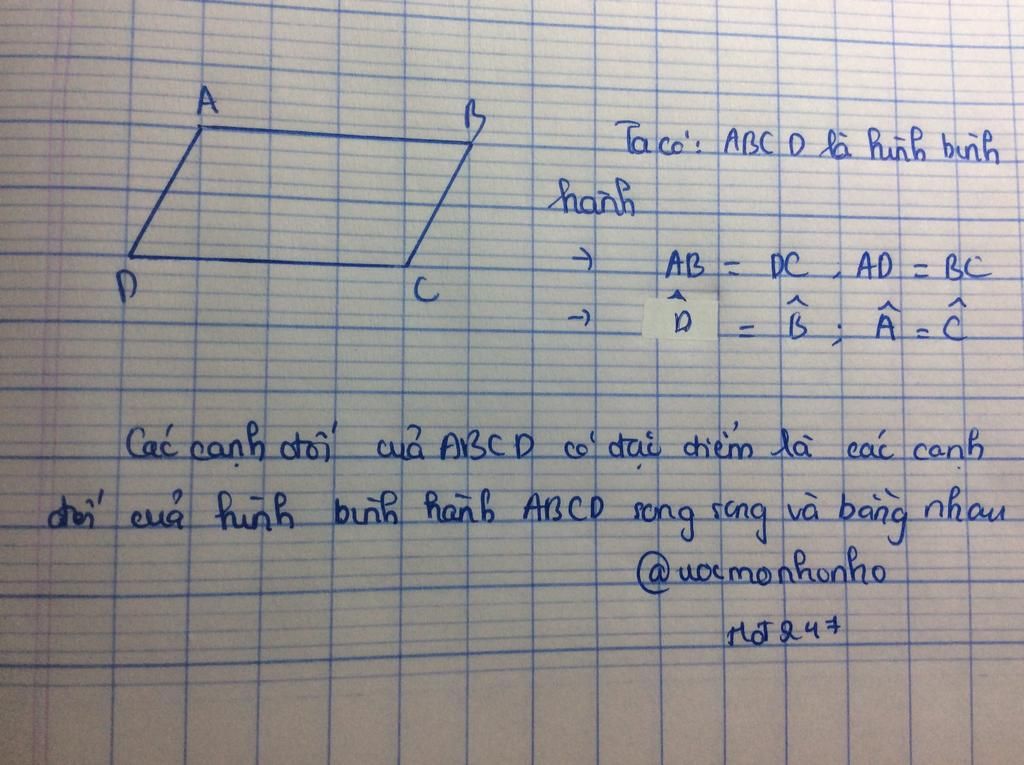 A
B
D
C
Ta có: ABCD là hình bình
hành
→ AB = DC , AD = BC
→ D̂ = B̂ ; Â = Ĉ
Các cạnh đối của ABCD có đặc điểm là các cạnh
đối của hình bình hành ABCD song song và bằng nhau
@uocmonhonho
H0T247